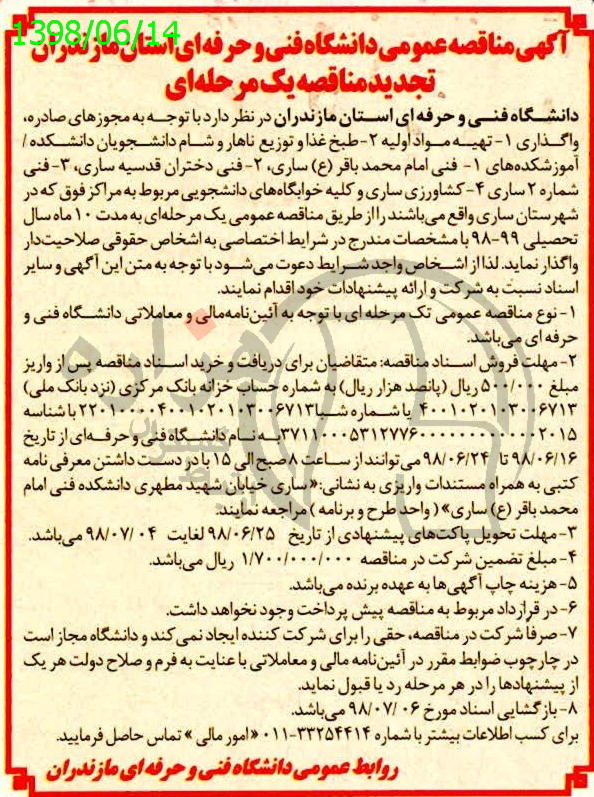 1398/06/14
آگهی مناقصه عمومی دانشگاه فنی و حرفه ای استان مازندران
تجدید مناقصه یک مرحله‌ای
دانشگاه فنی و حرفه ای استان مازندران در نظر دارد با توجه به مجوزهای صادره،
واگذاری ۱- تهیه مواد اولیه ۲-طبخ غذا و توزیع ناهار و شام دانشجویان دانشکده /
آموزشکده‌های ۱- فنی امام محمد باقر (ع) ساری، ۲- فنی دختران قدسیه ساری، ۳- فنی
شماره ۲ ساری ۴-کشاورزی ساری و کلیه خوابگاه‌های دانشجویی مربوط به مراکز فوق که در
شهرستان ساری واقع می‌باشند را از طریق مناقصه عمومی یک مرحله‌ای به مدت ۱۰ ماه سال
تحصیلی ۹۹-۹۸ با مشخصات مندرج در شرایط اختصاصی به اشخاص حقوقی صلاحیت‌دار
واگذار نماید. لذا از اشخاص واجد شرایط دعوت می‌شود با توجه به متن این آگهی و سایر
اسناد نسبت به شرکت و ارائه پیشنهادات خود اقدام نمایند.
۱- نوع مناقصه عمومی تک مرحله ای با توجه به آئین‌نامه‌مالی و معاملاتی دانشگاه فنی و
حرفه ای می‌باشد.
۲- مهلت فروش اسناد مناقصه: متقاضیان برای دریافت و خرید اسناد مناقصه پس از واریز
مبلغ ۵۰۰/۰۰۰ ریال (پانصد هزار ریال) به شماره حساب خزانه بانک مرکزی (نزد بانک ملی)
۴۰۰۱۰۲۰۱۰۳۰۰۶۷۱۳ یا شماره شبا ۲۲۰۱۰۰۰۰۴۰۰۱۰۲۰۱۰۳۰۰۶۷۱۳ با شناسه
۳۷۱۱۰۰۰۵۳۱۲۷۷۶۰۰۰۰۰۰۰۰۰۰۰۰۰۲۰۱۵ به نام دانشگاه فنی و حرفه‌ای از تاریخ
۹۸/۰۶/۱۶ تا ۹۸/۰۶/۲۴ می‌توانند از ساعت ۸ صبح الی ۱۵ با در دست داشتن معرفی نامه
کتبی به همراه مستندات واریزی به نشانی:«ساری خیابان شهید مطهری دانشکده فنی امام
محمد باقر (ع) ساری» ( واحد طرح و برنامه ) مراجعه نمایند.
۳- مهلت تحویل پاکت‌های پیشنهادی از تاریخ ۹۸/۰۶/۲۵ لغایت ۹۸/۰۷/۰۴ می‌باشد.
۴- مبلغ تضمین شرکت در مناقصه ۱/۷۰۰/۰۰۰/۰۰۰ ریال می‌باشد.
۵- هزینه چاپ آگهی‌ها به عهده برنده می‌باشد.
۶- در قرارداد مربوط به مناقصه پیش پرداخت وجود نخواهد داشت.
۷- صرفاً شرکت در مناقصه، حقی را برای شرکت کننده ایجاد نمی‌کند و دانشگاه مجاز است
در چارچوب ضوابط مقرر در آئین‌نامه مالی و معاملاتی با عنایت به فرم و صلاح دولت هر یک
از پیشنهادها را در هر مرحله رد یا قبول نماید.
۸- بازگشایی اسناد مورخ ۹۸/۰۷/۰۶ می‌باشد.
برای کسب اطلاعات بیشتر با شماره ۳۳۲۵۴۴۱۴-۰۱۱ «امور مالی» تماس حاصل فرمایید.
روابط عمومی دانشگاه فنی و حرفه ای مازندران